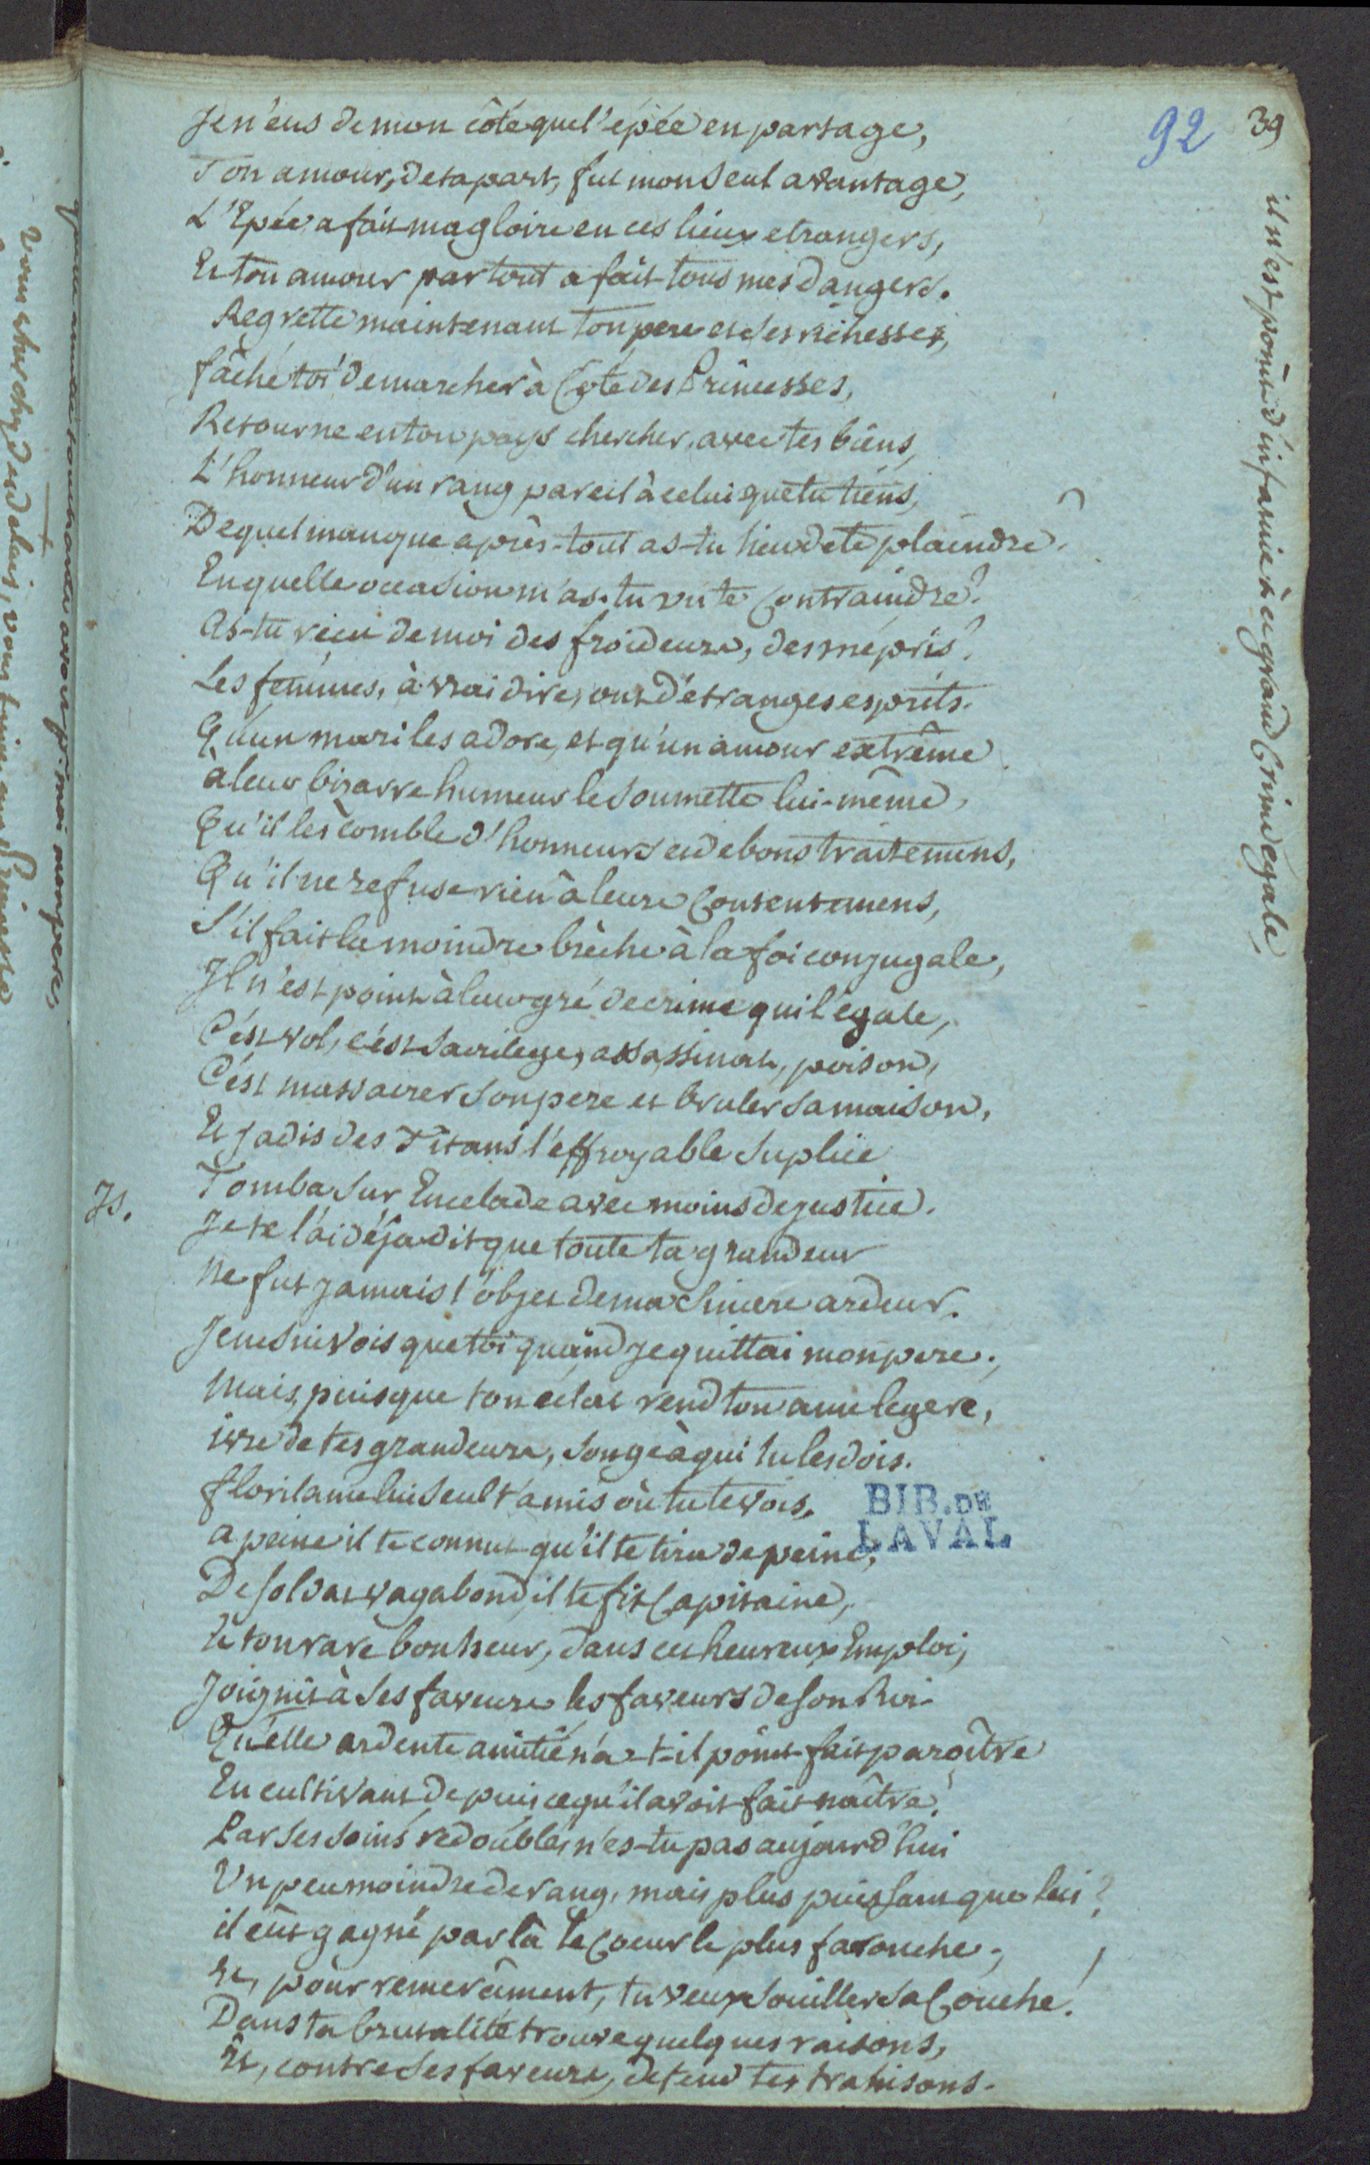 92 39
Je n'eus de mon côté que l'épée en partage,
Ton amour, de ta part, fut mon seul avantage,
L'Epée a fait ma gloire en ces lieux etrangers,
Et ton amour par tout a fait tous mes dangers.
Regrette maintenant ton pere et ses richesses,
fâche toi de marcher à Coté des Princesses,
Retourne en ton pays chercher, avec tes biens,
L'honneur d'un rang pareil à celui que tu tiens,
De quel manque après-tout as-tu lieu de te plaindre?
En quelle occasion m'as-tu vu te Contraindre?
As-tu reçu de moi des froideurs, des mépris?
Les femmes, à vrai dire, ont d'étranges esprits.
Qu'un mari les adore, et qu'un amour extrême
à leur bizarre humeur le soumette lui-même,
Qu'il les comble d'honneurs et de bons traitemens,
Qu'il ne refuse rien à leurs Contentemens,
S'il fait la moindre brèche à la foi conjugale,
Il n'est point à leur gré de crime qui l'égale,
C'est vol, c'est sacrilege, assassinat, poison,
C'est massacrer son pere et bruler sa maison,
Et jadis des Titans l'effroyable suplice
Tomba sur Encelade avec moins de justice.
Is. Je te l'ai déja dit que toute ta grandeur
Ne fut jamais l'objet de ma sincere ardeur.
Je ne suivois que toi quand je quittai mon pere;
Mais, puisque ton éclat rend ton ame legere,
ivre de tes grandeurs, songe à qui tu les dois.
florilame lui seul t'a mis où tu te vois,
a peine il te connut qu'il te tira de peine,
De soldat vagabond, il te fit Capitaine,
Et ton rare bonheur, dans cet heureux Emploi,
Joignit à ses faveurs les faveurs de son Roi.
Qu'elle ardente amitié n'a-t-il point fait paroître
En cultivant depuis ce qu'il avoit fait naître?
Par ses soins redoublés n'es-tu pas aujourd'hui
Un peu moindre de rang, mais plus puissant que lui?
il eût gagné par là le Coeur le plus farouche;
Et, pour remerciment, tu veux souiller sa Couche!
Dans ta brutalité trouve quelques raisons,
Et, contre ses faveurs, defend tes trahisons.
il n'est point d'infamie à ce grand Crime égale,
BIB. DE
LAVAL